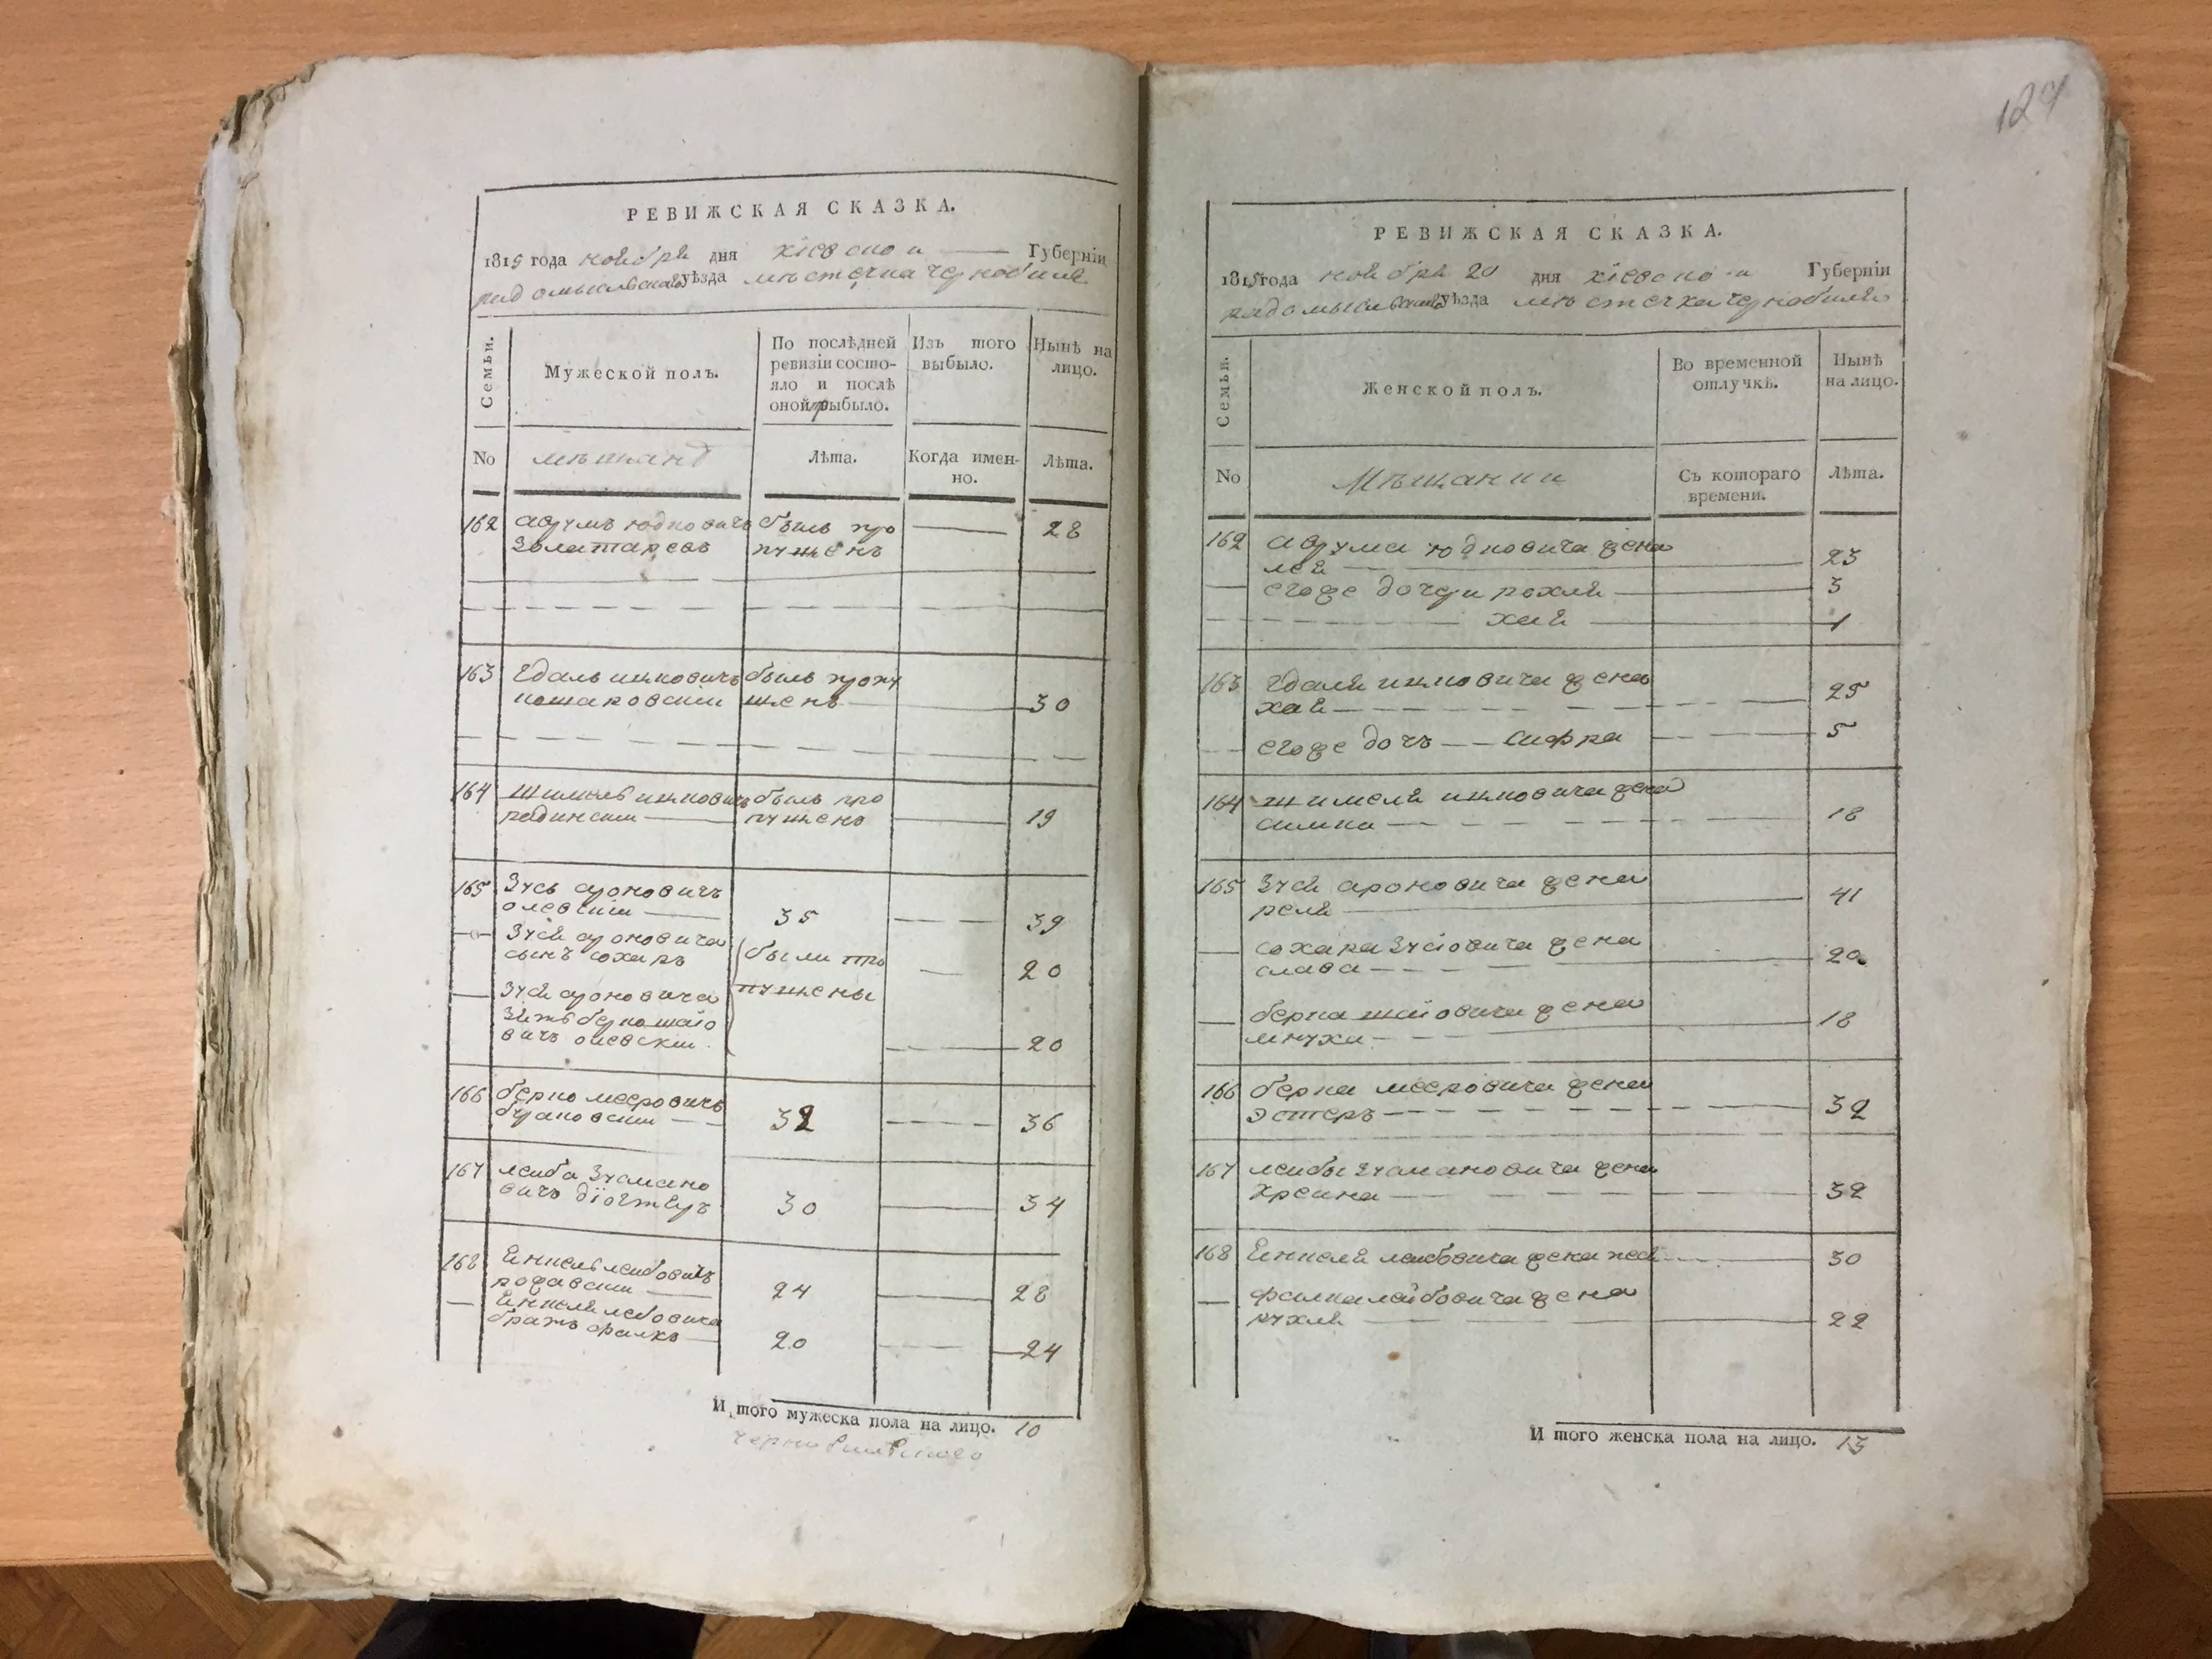 РЕВИЖСКАЯ СКАЗКА.
1815 года ноября дня кіевской Губерніи
радомысльскаго уѣзда мѣстечка чернобиля
Семьи.
Мужеской полъ.
По послѣдней ревизіи состо-
яло и послѣ
оной прибыло.
Изъ того
выбыло.
Нынѣ на
лицо.
No мѣщанъ Лѣта. Когда имен-
но. Лѣта.
162 аврумъ юдковичъ былъ про
золатаревъ пущенъ 28
163 гдаль ицковичъ былъ пропу
пошаровскій щенъ 30
164 шимель ицковичъ былъ про
радинскій пущенъ 19
165 Зусь ароновичъ
олевскій 35 39
Зуся ароновича
сынъ сохаръ были про 20
Зуся ароновича пущены
Зять берко шаіо
вичъ олевскій 20
166 берко мееровичъ
32 36
167 лейба Зусмано
вичъ 30 34
168 Янкель лейбовичъ
24 28
Янкеля лейбовича
братъ фалкъ 20 24
И того мужеска пола на лицо. 10
127
РЕВИЖСКАЯ СКАЗКА.
1815 года ноября 20 дня кіевской Губерніи
радомысльскаго уѣзда мѣстечка чернобиля
Семьи.
Женской полъ.
Во временной
отлучкѣ.
Нынѣ
на лицо.
No Мѣщанки Съ котораго
времени. Лѣта.
162 аврума юдковича жена
лея 23
егоже дочери рохля 3
хая 1
163 гдаля ицковича жена 25
хая
егоже дочь сифра 5
164 шимеля ицковича жена
симка 18
165 Зуся ароновича жена
реля 41
сохара Зусіовича жена
слава 20
берка шаіовича жена
мнуха 18
166 берка мееровича жена
эстеръ 32
167 лейбы Зусмановича жена
креина 32
168 Янкеля лейбовича жена песя 30
фалка лейбовича жена
рухля 22
И того женска пола на лицо. 13